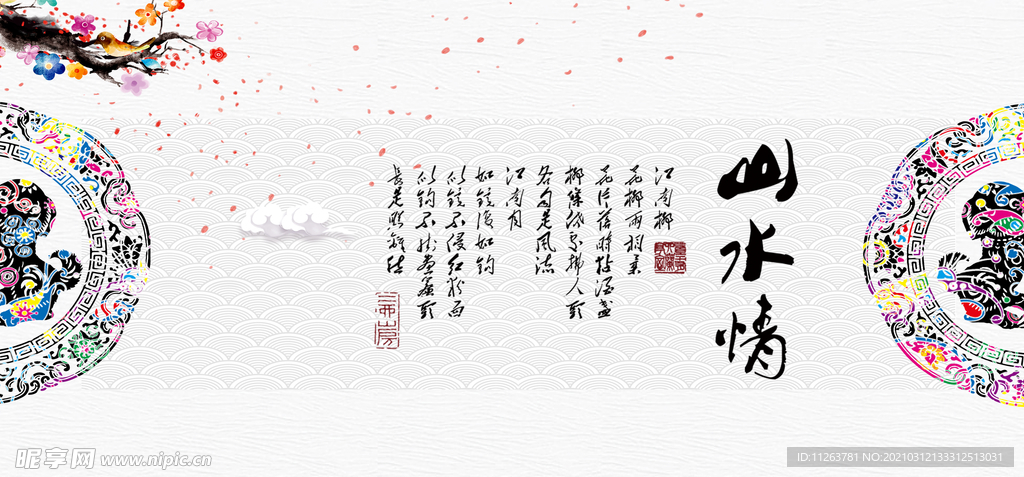 山水情
江南柳
花柳两相柔
花片落时粘酒盏
柳条低处拂人头
各自是风流
江南月
如镜复如钩
似镜不侵红粉面
似钩不挂画帘头
长是照离愁
昵享网 www.nipic.cn
ID:11263781 NO:20210312133312513031